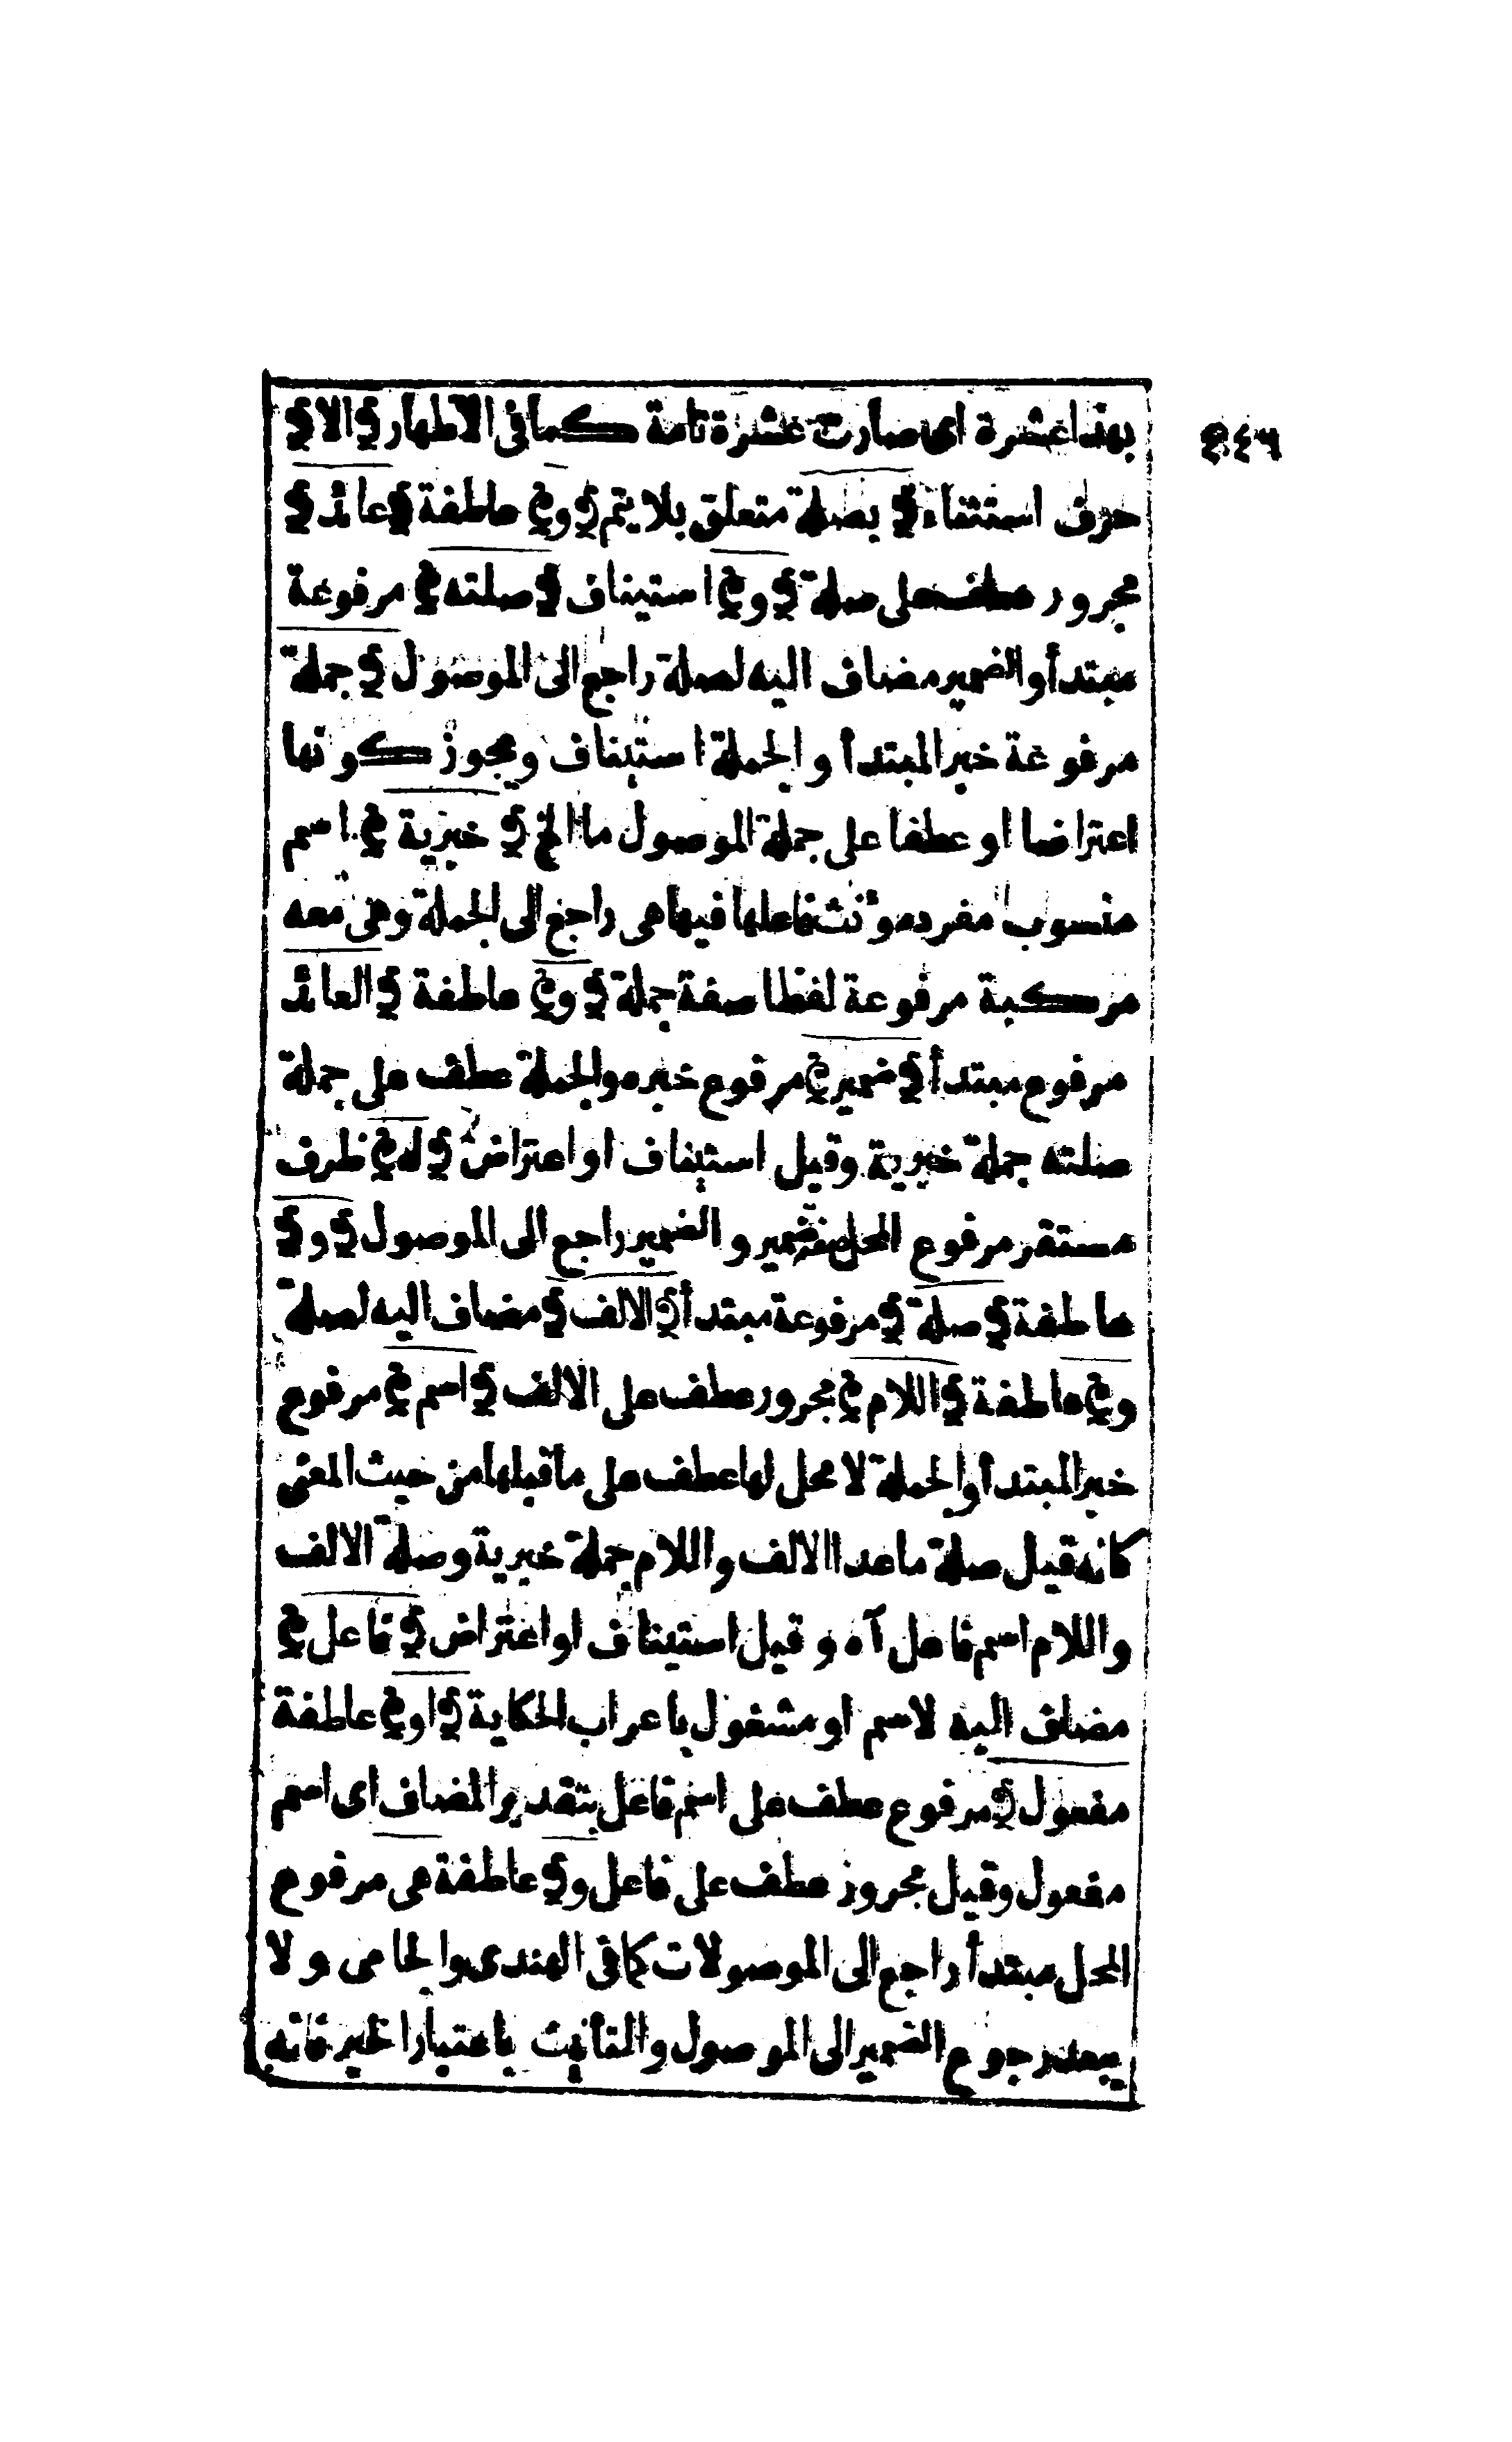 ٤٤٦
بهذا عشرة اى صارت عشرة تامة كما فى الاظهار ﴿ الا ﴾
حرف استثناء ﴿ بصلة ﴾ متعلق بلا يتم ﴿ و ﴾ عاطفة ﴿ عائد ﴾
مجرور عطف على صلة ﴿ و ﴾ استيناف ﴿ صلته ﴾ مرفوعة
مبتدأ والضمير مضاف اليه لصلة راجع الى الموصول ﴿ جملة ﴾
مرفوعة خبر المبتدأ والجملة استيناف ويجوز كونها
اعتراضا او عطفا على جملة الموصول ما الخ ﴿ خبرية ﴾ اسم
منسوب مفرد مؤنث فاعلها فيها هى راجع الى الجملة وهى معه
مركبة مرفوعة لفظا صفة جملة ﴿ و ﴾ عاطفة ﴿ العائد ﴾
مرفوع مبتدأ ﴿ ضمير ﴾ مرفوع خبره والجملة عطف على جملة
صلته جملة خبرية وقيل استيناف او اعتراض ﴿ له ﴾ ظرف
مستقر مرفوع المحل صفة ضمير والضمير راجع الى الموصول ﴿ و ﴾
عاطفة ﴿ صلة ﴾ مرفوعة مبتدأ ﴿ الالف ﴾ مضاف اليه لصلة
﴿ و ﴾ عاطفة ﴿ اللام ﴾ مجرور عطف على الالف ﴿ اسم ﴾ مرفوع
خبر المبتدأ والجملة لا محل لها عطف على ما قبلها من حيث المعنى
كانه قيل صلة ما عدا الالف واللام جملة خبرية وصلة الالف
واللام اسم فاعل آه وقيل استيناف او اعتراض ﴿ فاعل ﴾
مضاف اليه لاسم او مشغول باعراب الحكاية ﴿ او ﴾ عاطفة
مفعول ﴾ مرفوع عطف على اسم فاعل بتقدير المضاف اى اسم
مفعول وقيل مجرور عطف على فاعل و﴾ عاطفة هى مرفوع
المحل مبتدأ راجع الى الموصولات كما فى الهندى والجامى ولا
يبعد رجوع الضمير الى الموصول والتأنيث باعتبار الخبر فانه